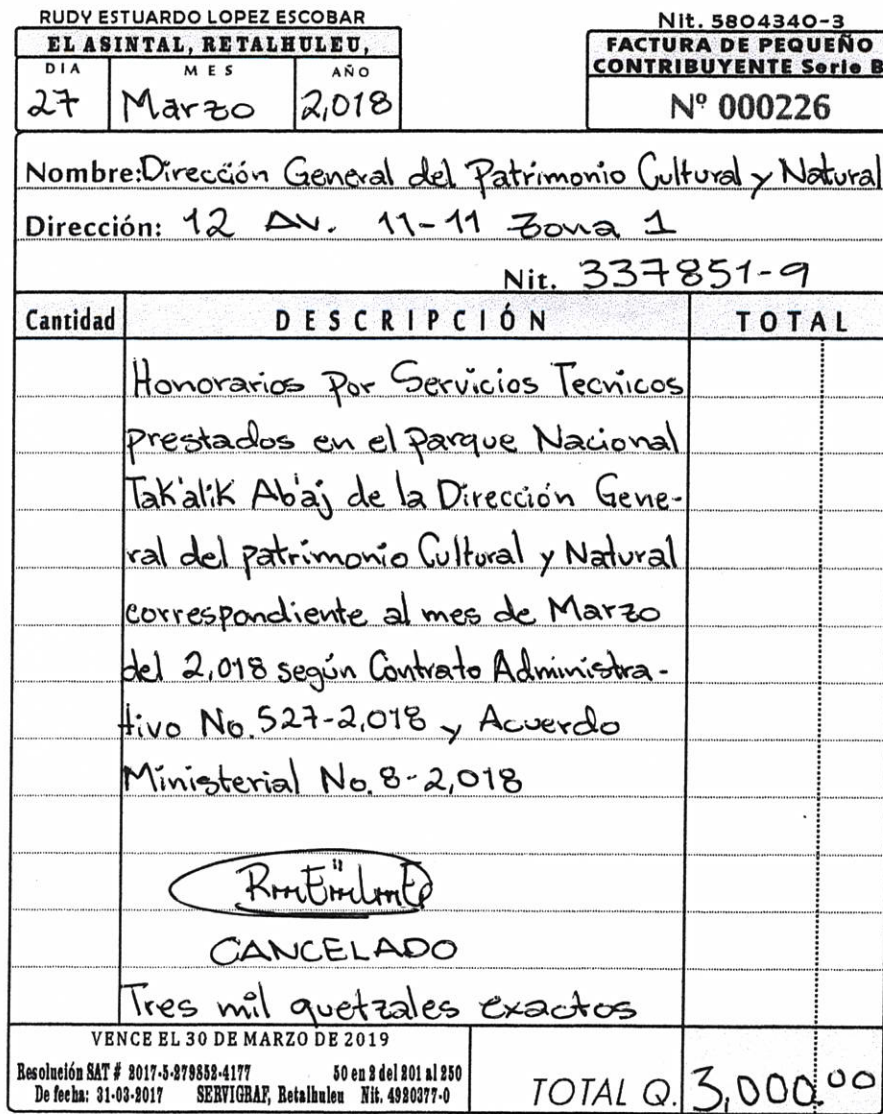 RUDY ESTUARDO LOPEZ ESCOBAR
EL ASINTAL, RETALHULEU,
DIA MES AÑO
27 Marzo 2,018
Nit. 5804340-3
FACTURA DE PEQUEÑO
CONTRIBUYENTE Serie B
Nº 000226
Nombre: Dirección General del Patrimonio Cultural y Natural
Dirección: 12 AV. 11-11 Zona 1
Nit. 337851-9
Cantidad DESCRIPCIÓN TOTAL
Honorarios Por Servicios Tecnicos
prestados en el Parque Nacional
Tak'alik Ab'aj de la Dirección Gene-
ral del patrimonio Cultural y Natural
correspondiente al mes de Marzo
del 2,018 según Contrato Administra-
tivo No. 527-2,018 y Acuerdo
Ministerial No. 8-2,018
CANCELADO
Tres mil quetzales exactos
VENCE EL 30 DE MARZO DE 2019
Resolución SAT # 2017-5-279852-4177 50 en 2 del 201 al 250
De fecha: 31-03-2017 SERVIGRAF, Retalhuleu Nit. 4920377-0
TOTAL Q. 3,000.00